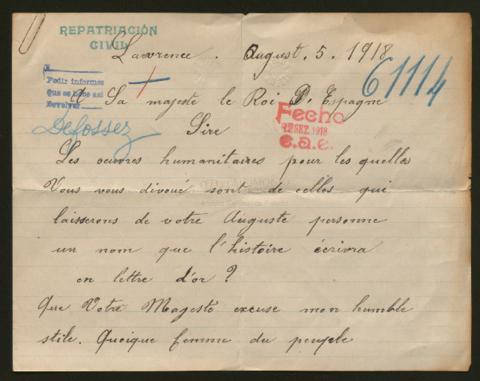 REPATRIACIÓN
CIVIL
Lawrence. August. 5. 1918
61114
Pedir informes
que se pase así
Devolver
A Sa majeste le Roi D. Espagne
Fecho
12 SET. 1918
c.a.e.
Defossez
Sire
Les oeuvres humanitaires pour les quelles
Vous vous divoué sont de celles qui
laisserons de votre Auguste personne
un nom que l'histoire écrivra
en lettre d'or?
Que Votre Magesté excuse mon humble
stile. Quoique femme du peuple